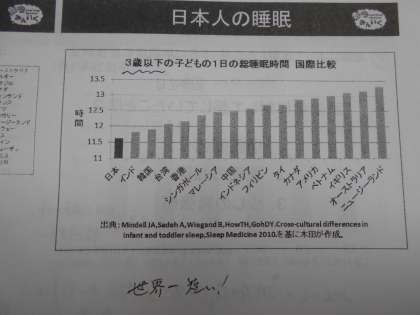 日本人の睡眠
みんいく
3歳以下の子どもの1日の総睡眠時間 国際比較
時間
13.5
13
12.5
12
11.5
11
日本
インド
韓国
台湾
香港
シンガポール
マレーシア
中国
インドネシア
フィリピン
タイ
カナダ
アメリカ
ベトナム
イギリス
オーストラリア
ニュージーランド
出典：Mindell JA,Sadeh A,Wiegand B,HowTH,GohDY.Cross-cultural differences in
infant and toddler sleep.Sleep Medicine 2010.を基に木田が作成。
世界一短い!